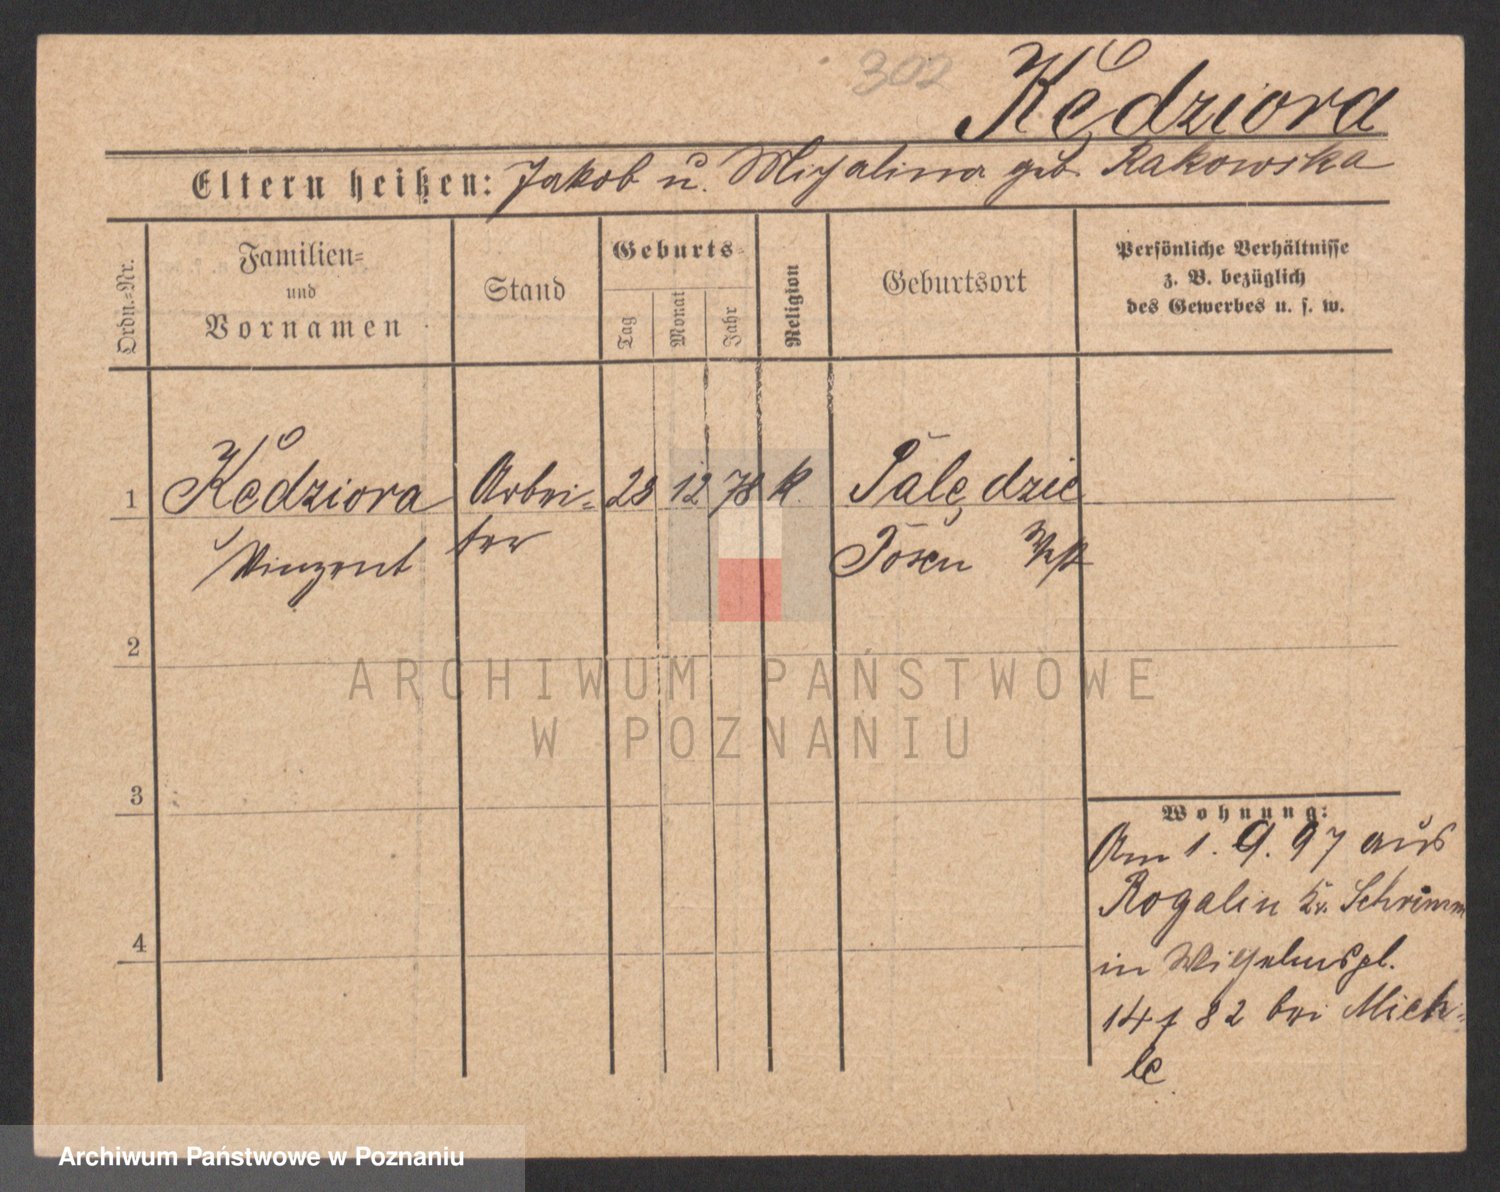 302
Kędziora
Eltern heißen: Jakob u. Michalina geb. Rakowska
Ordn.=Nr.
Familien=
und
Vornamen
Stand
Geburts=
Tag
Monat
Jahr
Religion
Geburtsort
Persönliche Verhältnisse
z. B. bezüglich
des Gewerbes u. s. w.
1 Kędziora Arbei= 28 12 78 k. Palędzie
Vinzent ter Posen
2
3
4
Wohnung:
Am 1. 9. 97 aus
Rogalin Kr. Schrimm
in Wilhelmspl.
14/ 82 bei Mich=
le
ARCHIWUM PAŃSTWOWE
W POZNANIU
Archiwum Państwowe w Poznaniu